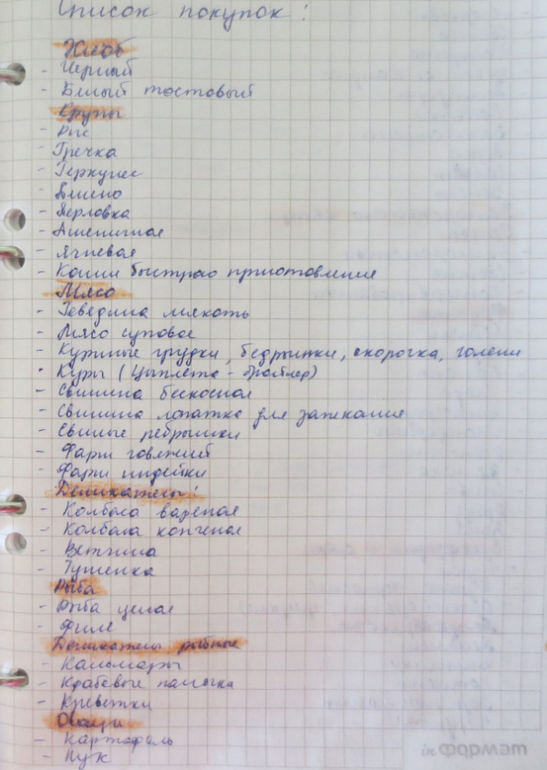 Список покупок:
Хлеб
- Черный
- Белый тостовый
Крупы
- Рис
- Гречка
- Геркулес
- Пшено
- Перловка
- Пшеничная
- Ячневая
- Каши быстрого приготовления
Мясо
- Говядина мякоть
- Мясо суповое
- Куриные грудки, бедрышки, окорочка, голени
- Куры (Цыплята - бройлер)
- Свинина бескосная
- Свинина лопатка для запекания
- Свиные ребрышки
- Фарш говяжий
- Фарш индейки
Деликатесы:
- Колбаса вареная
- Колбаса копченая
- Ветчина
- Тушенка
Рыба
- Рыба целая
- Филе
Деликатесы рыбные
- Кальмары
- Крабовые палочка
- Креветки
Овощи
- Картофель
- Лук